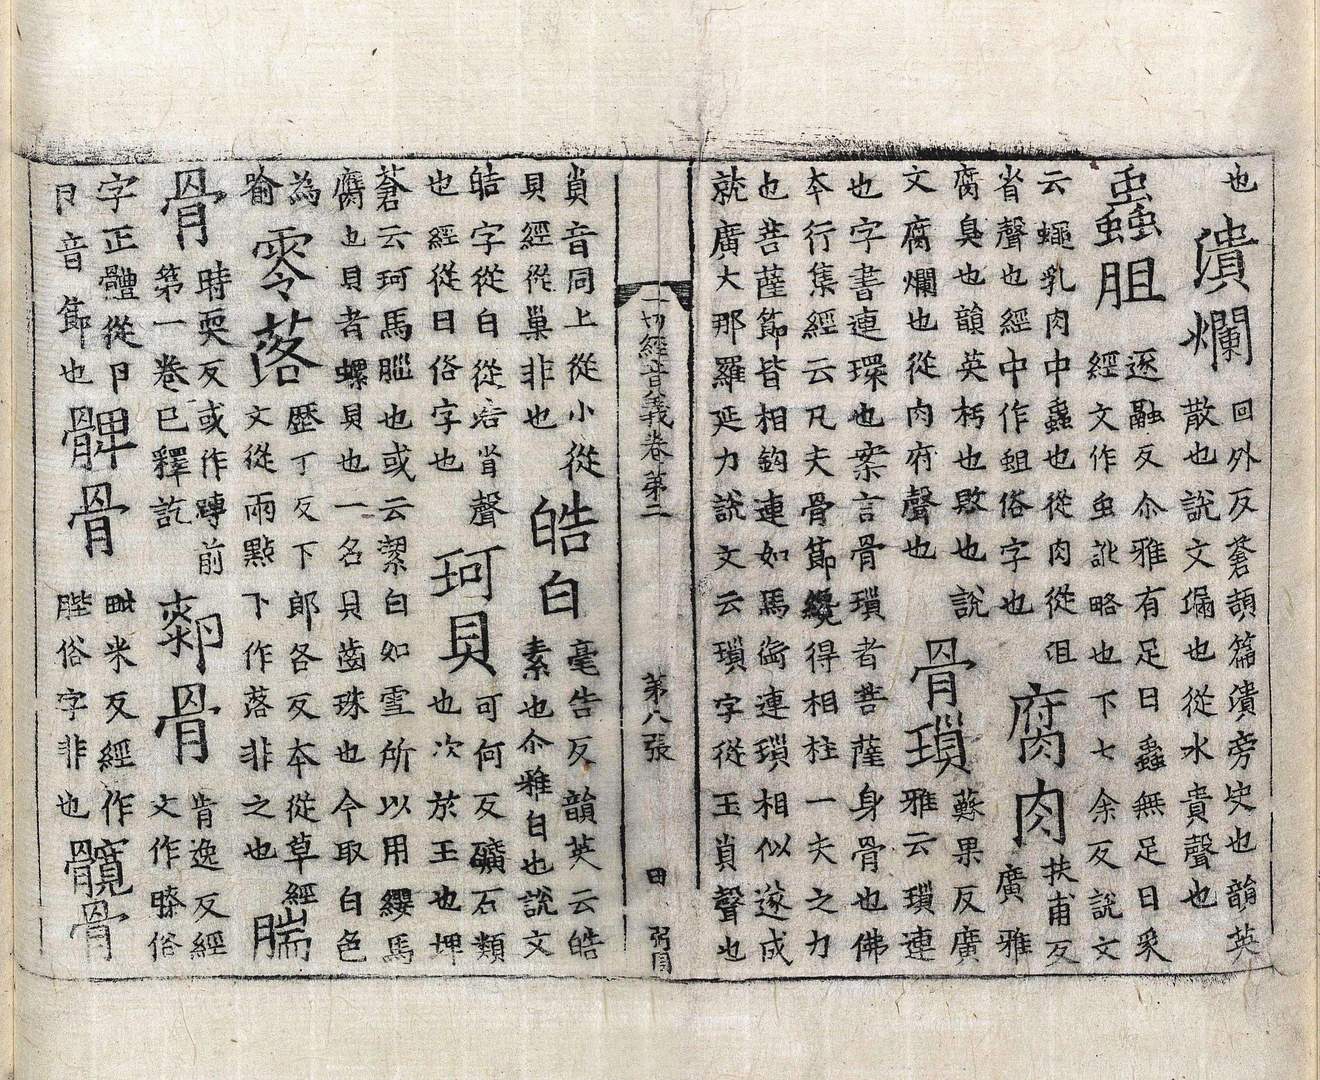 也
潰爛
回外反蒼頡篇潰旁史也韻英
散也說文漏也從水貴聲也
蟲胆
逐融反尒雅有足曰蟲無足曰豸
經文作虫訛略也下七余反說文
云蠅乳肉中蟲也從肉從沮
省聲也經中作蛆俗字也
腐肉
扶甫反
廣雅
腐臭也韻英朽也敗也說
文腐爛也從肉府聲也
骨瑣
蘇果反廣
雅云瑣連
也字書連環也案言骨瑣者菩薩身骨也佛
本行集經云凡夫骨節纔得相柱一夫之力
也菩薩節皆相鈎連如馬銜連瑣相似遂成
就廣大那羅延力說文云瑣字從玉𧴪聲也
一切經音義卷第二 第八張 田
𧴪音同上從小從
貝經從巢非也
皓白
毫告反韻英云皓
素也尒雅白也說文
皓字從白從告省聲
也經從日俗字也
珂貝
可何反礦石類
也次於玉也埤
蒼云珂馬腦也或云潔白如雪所以用纓馬
膺也貝者螺貝也一名貝齒珠也今取白色
為
喻
零落
歷丁反下郎各反本從草經
文從兩點下作落非之也
腨骨
時耎反或作䏝前
第一卷已釋訖
厀骨
肯逸反經
文作膝俗
字正體從卪
卪音節也
髀骨
毗米反經作
䏶俗字非也
髖骨